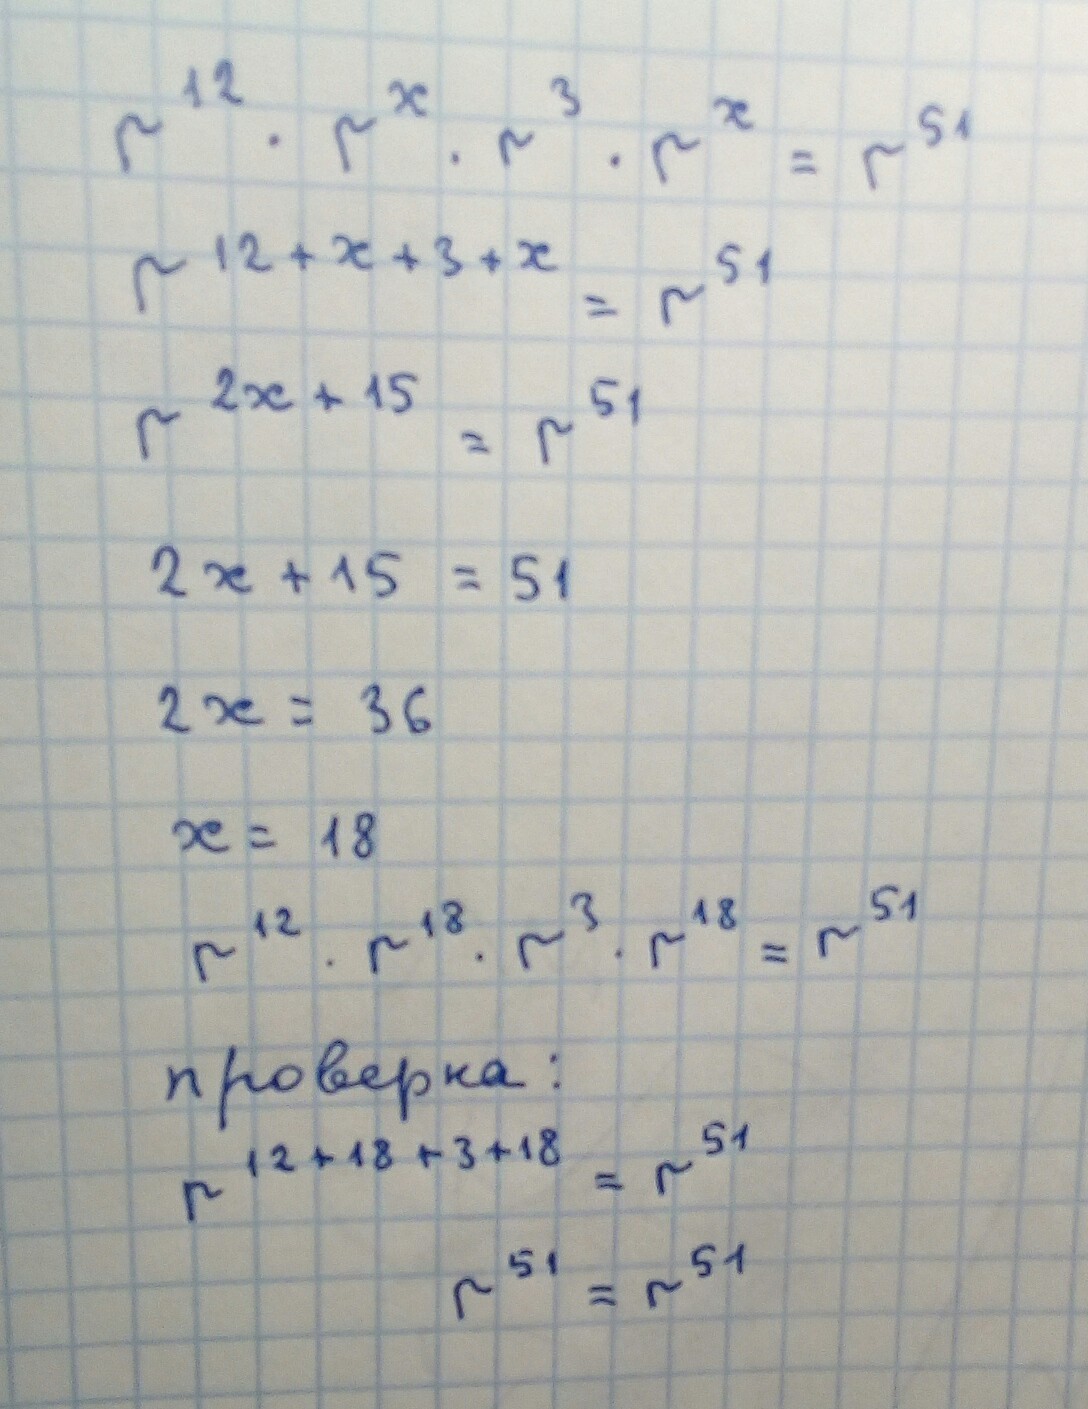 r¹² · rˣ · r³ · rˣ = r⁵¹
r¹²⁺ˣ⁺³⁺ˣ = r⁵¹
r²ˣ⁺¹⁵ = r⁵¹
2x + 15 = 51
2x = 36
x = 18
r¹² · r¹⁸ · r³ · r¹⁸ = r⁵¹
проверка:
r¹²⁺¹⁸⁺³⁺¹⁸ = r⁵¹
r⁵¹ = r⁵¹